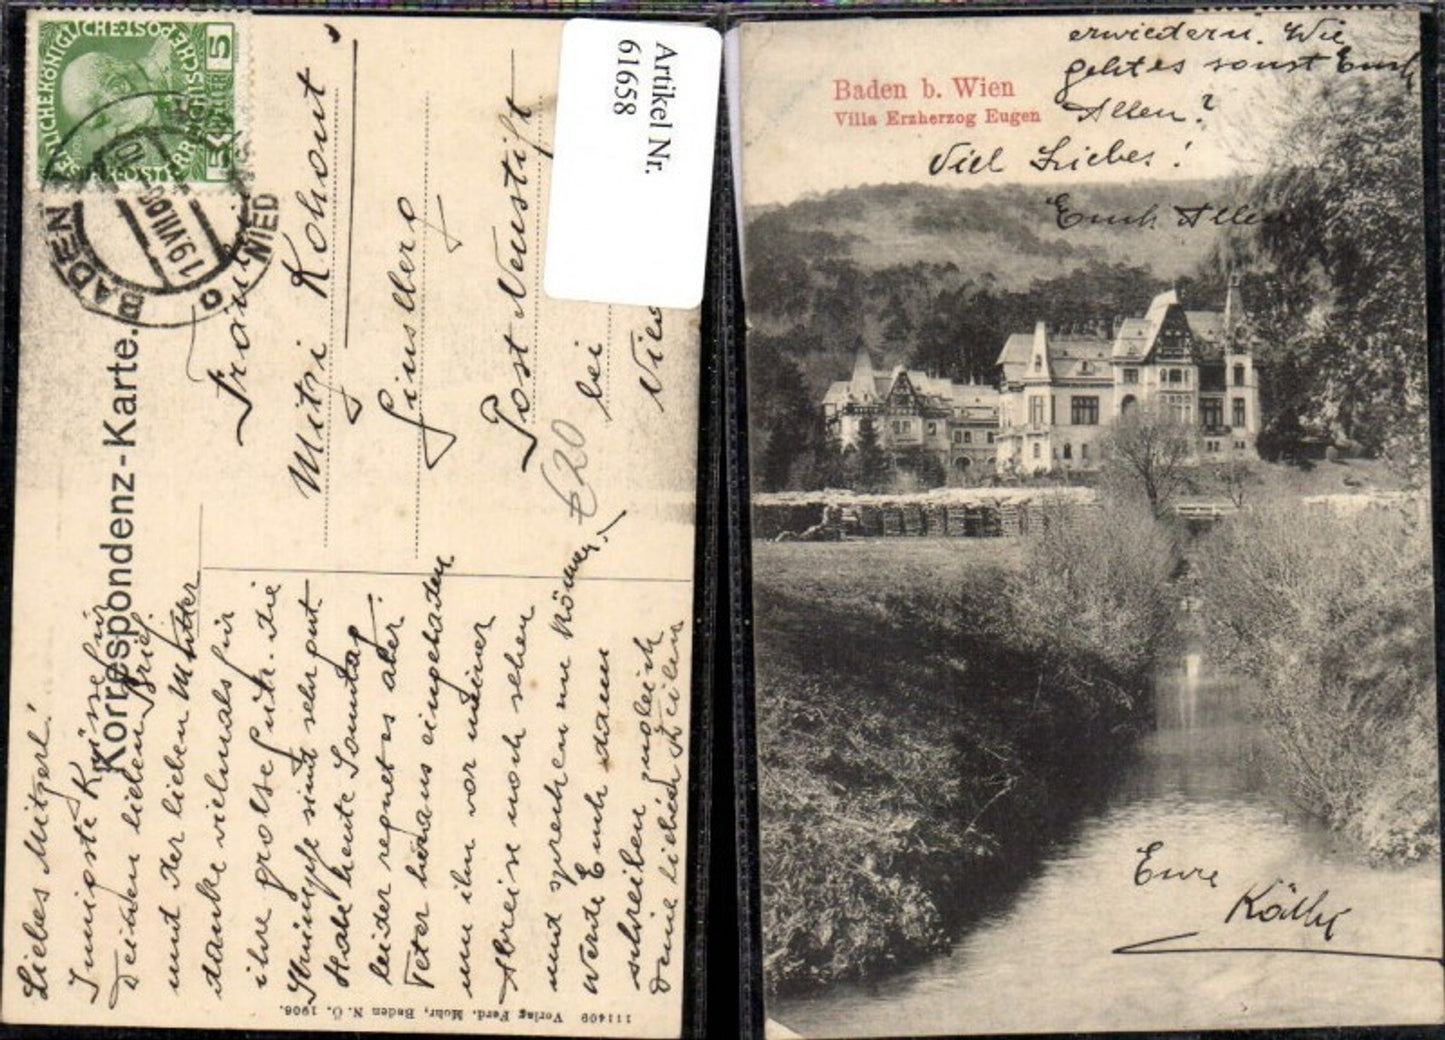 KAISERLICHE KÖNIGLICHE ÖSTERREICHISCHE POST
5 HELLER 5
BADEN
19 VII 09
NIED
Korrespondenz-Karte.
Fräul
Mitzi Kohout
Post Neustift
bei
€20
Artikel Nr.
61658
Liebes Mitzerl!
Innigste Küsse für
Deinen lieben Brief
und der lieben Mutter
danke vielmals für
ihre große Güte. Die
Strümpfe sind sehr gut.
Habe heute Sonntag
leider regnet es aber.
Peter heraus eingeladen
um ihn vor meiner
Abreise noch sehen
und sprechen zu können.
Werde Euch dann
schreiben zugleich
Deine lieben Zeilen
111409 Verlag Ferd. Mohr, Baden N. Ö. 1908.
Baden b. Wien
Villa Erzherzog Eugen
erwiedern. Wie
geht es sonst Euch
Allen?
Viel Liebes!
Euch Allen
Eure
Käthe